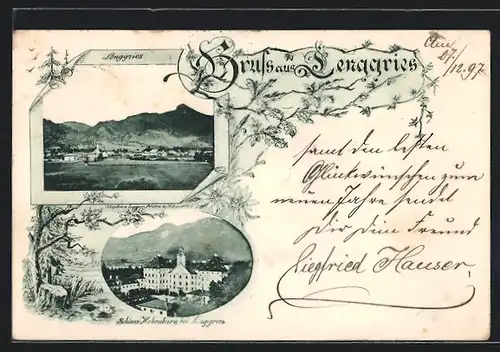 Lenggries
Gruss aus Lenggries
27/12.97
samt den besten
Glückwünschen zum
neuen Jahre sendet
Dir Dein Freund
Siegfried Hauser.
Schloss Hohenburg bei Lenggries